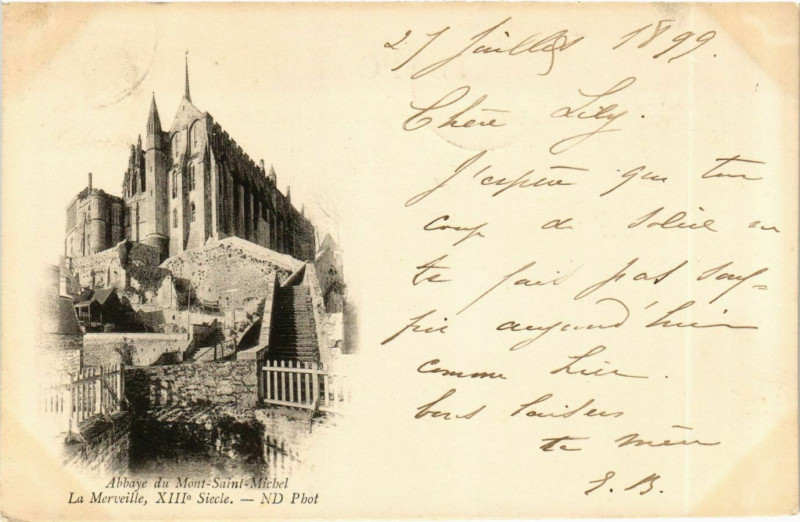 27 Juillet 1899.
Chère Lily.
J'espère que ton
coup de soleil ne
te fait pas souf=
frir aujourd'hui
comme hier.
bons baisers
ta mère
J. B.
Abbaye du Mont-Saint-Michel
La Merveille, XIIIe Siecle. — ND Phot